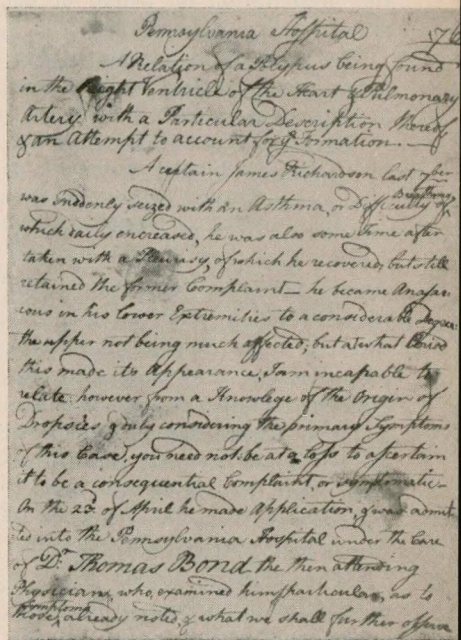 Pennsylvania Hospital 76
A Relation of a Polypus being found
in the Right Ventricle of the Heart & Pulmonary
Artery with a Particular Description thereof
& an Attempt to account for yͤ Formation.
A certain James Richardson last
was Suddenly seized with an Asthma, or Difficulty of Breathing
which daily encreased, he was also some time after
taken with a Pleurasy, of which he recovered, but still
retained the former Complaint — he became Anasar
cous in his lower Extremities to a considerable Degree
the upper not being much affected; but at what Period
this made its Appearance, I am incapable to
relate, however from a Knowlege of the Origin of
Dropsies, & duly considering the primary Symptoms
of this Case, you need not be at a loss to ascertain
it to be a consequential Complaint, or symptomatic —
On the 23ᵈ of April he made Application, & was admit
ted into the Pennsylvania Hospital under the Care
of Dʳ Thomas Bond the then attending
Physician, who examined him particular, as to
Symptoms
those already noted, & what we shall further observe